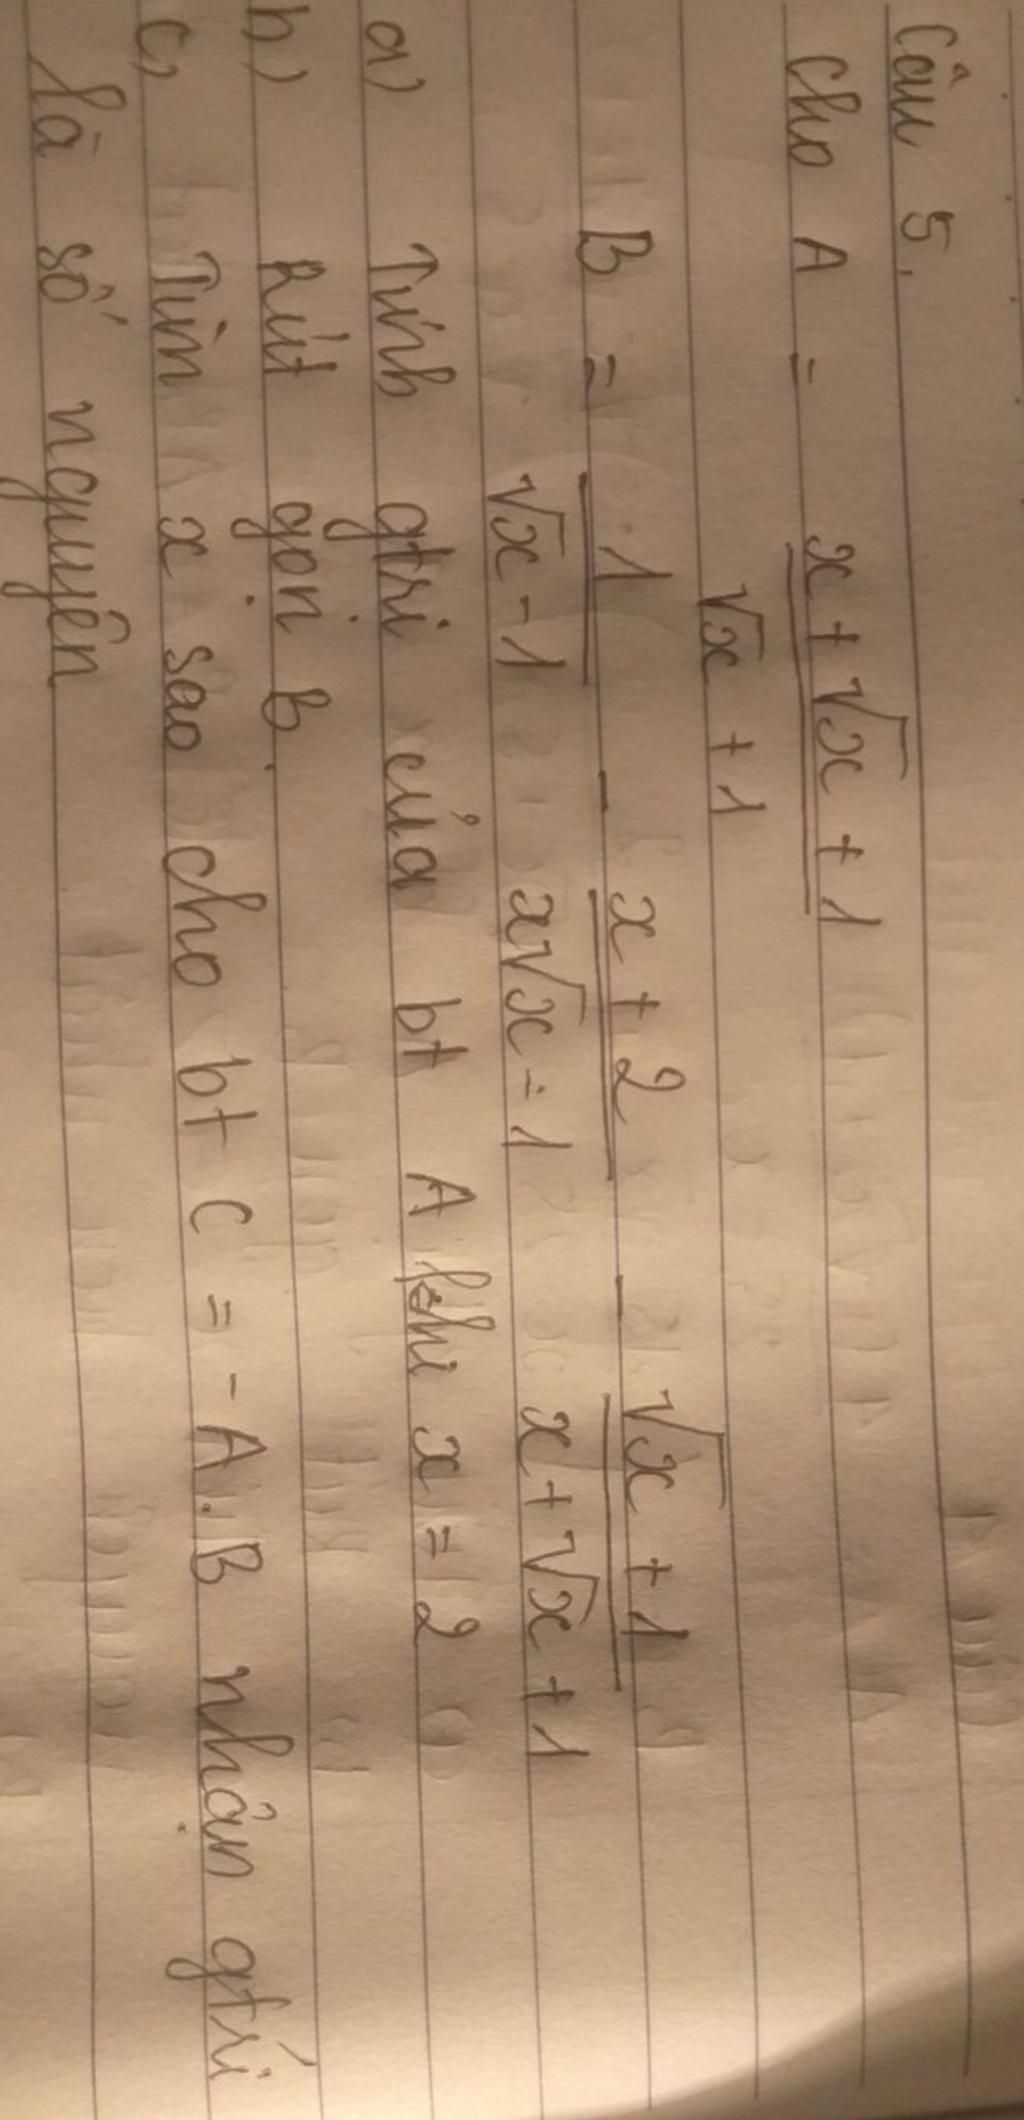 Câu 5.
Cho A = x + √x + 1
√x + 1
B = 1 - x + 2 - √x + 1
√x - 1 x√x - 1 x + √x + 1
a) Tính gtri của bt A khi x = 2
b) Rút gọn B.
c, Tìm x sao cho bt C = - A.B nhận gtrí
là số nguyên